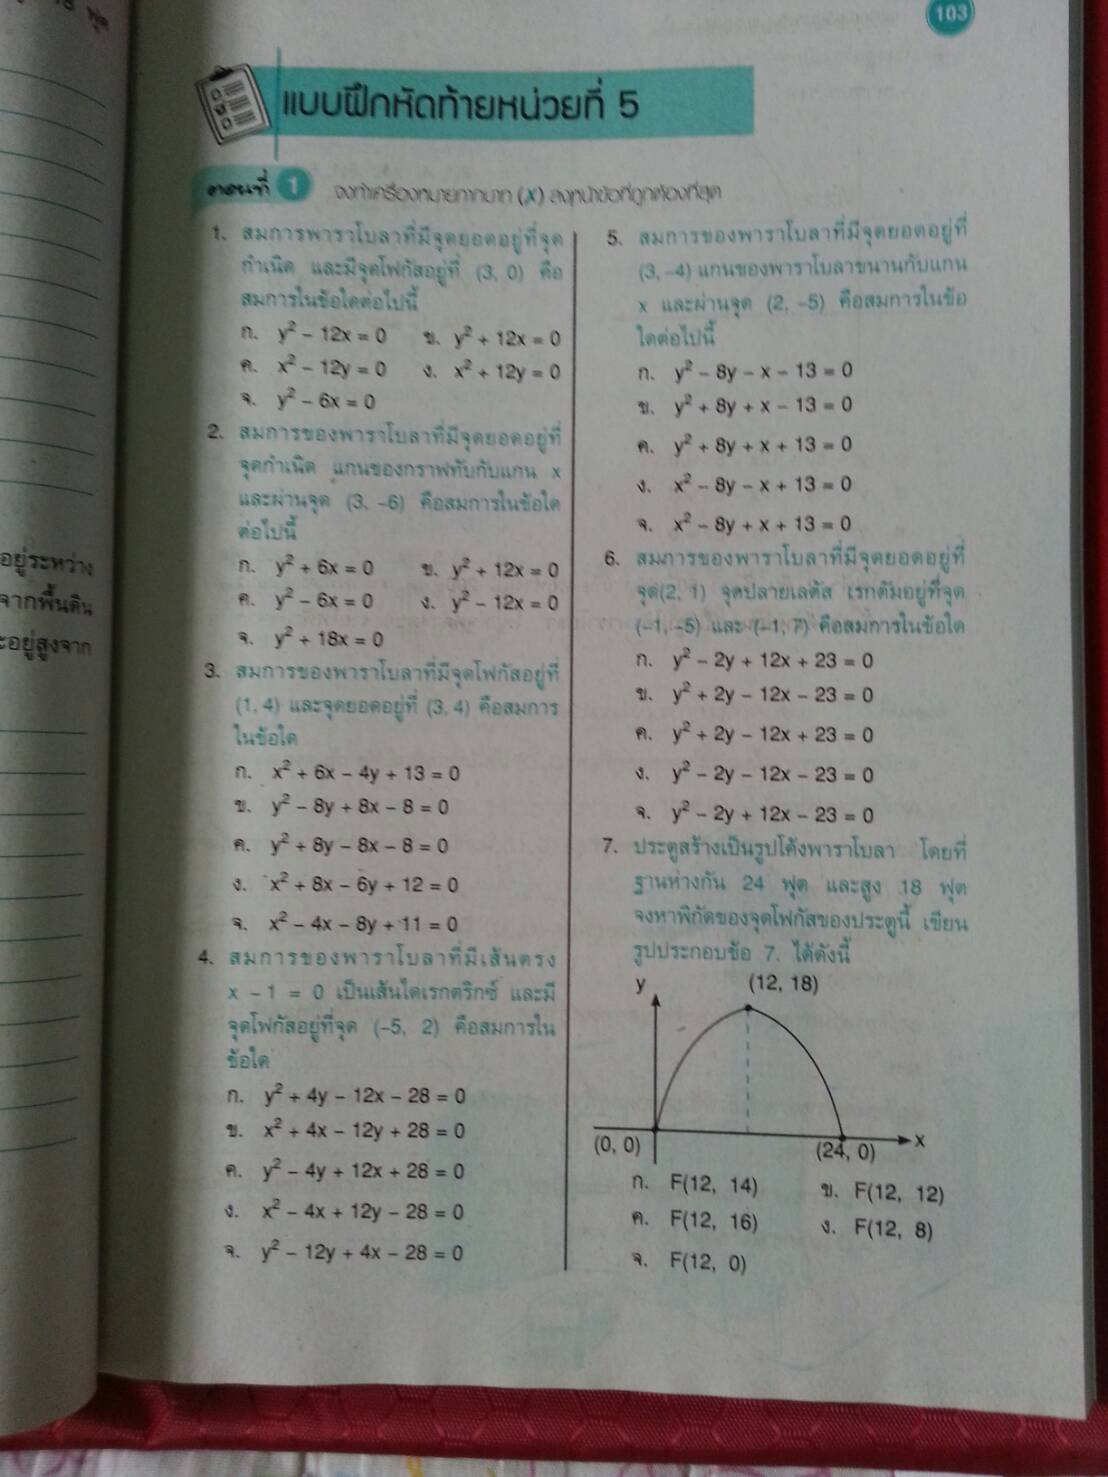 103
แบบฝึกหัดท้ายหน่วยที่ 5
ตอนที่ 1 จงทำเครื่องหมายกากบาท (X) ลงหน้าข้อที่ถูกต้องที่สุด
1. สมการพาราโบลาที่มีจุดยอดอยู่ที่จุด
กำเนิด และมีจุดโฟกัสอยู่ที่ (3, 0) คือ
สมการในข้อใดต่อไปนี้
ก. y² – 12x = 0 ข. y² + 12x = 0
ค. x² – 12y = 0 ง. x² + 12y = 0
จ. y² – 6x = 0
2. สมการของพาราโบลาที่มีจุดยอดอยู่ที่
จุดกำเนิด แกนของกราฟทับกับแกน x
และผ่านจุด (3, –6) คือสมการในข้อใด
ต่อไปนี้
ก. y² + 6x = 0 ข. y² + 12x = 0
ค. y² – 6x = 0 ง. y² – 12x = 0
จ. y² + 18x = 0
3. สมการของพาราโบลาที่มีจุดโฟกัสอยู่ที่
(1, 4) และจุดยอดอยู่ที่ (3, 4) คือสมการ
ในข้อใด
ก. x² + 6x – 4y + 13 = 0
ข. y² – 8y + 8x – 8 = 0
ค. y² + 8y – 8x – 8 = 0
ง. x² + 8x – 6y + 12 = 0
จ. x² – 4x – 8y + 11 = 0
4. สมการของพาราโบลาที่มีเส้นตรง
x – 1 = 0 เป็นเส้นไดเรกตริกซ์ และมี
จุดโฟกัสอยู่ที่จุด (–5, 2) คือสมการใน
ข้อใด
ก. y² + 4y – 12x – 28 = 0
ข. x² + 4x – 12y + 28 = 0
ค. y² – 4y + 12x + 28 = 0
ง. x² – 4x + 12y – 28 = 0
จ. y² – 12y + 4x – 28 = 0
5. สมการของพาราโบลาที่มีจุดยอดอยู่ที่
(3, –4) แกนของพาราโบลาขนานกับแกน
x และผ่านจุด (2, –5) คือสมการในข้อ
ใดต่อไปนี้
ก. y² – 8y – x – 13 = 0
ข. y² + 8y + x – 13 = 0
ค. y² + 8y + x + 13 = 0
ง. x² – 8y – x + 13 = 0
จ. x² – 8y + x + 13 = 0
6. สมการของพาราโบลาที่มีจุดยอดอยู่ที่
จุด(2, 1) จุดปลายเลตัส เรกตัมอยู่ที่จุด
(–1, –5) และ (–1, 7) คือสมการในข้อใด
ก. y² – 2y + 12x + 23 = 0
ข. y² + 2y – 12x – 23 = 0
ค. y² + 2y – 12x + 23 = 0
ง. y² – 2y – 12x – 23 = 0
จ. y² – 2y + 12x – 23 = 0
7. ประตูสร้างเป็นรูปโค้งพาราโบลา โดยที่
ฐานห่างกัน 24 ฟุต และสูง 18 ฟุต
จงหาพิกัดของจุดโฟกัสของประตูนี้ เขียน
รูปประกอบข้อ 7. ได้ดังนี้
y
(12, 18)
x
(0, 0)
(24, 0)
ก. F(12, 14) ข. F(12, 12)
ค. F(12, 16) ง. F(12, 8)
จ. F(12, 0)
ฟุต
อยู่ระหว่าง
จากพื้นดิน
อยู่สูงจาก